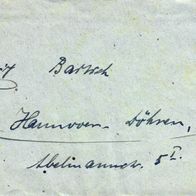 Bartsch
Hannover-Döhren,
Abelmannstr. 5 I.